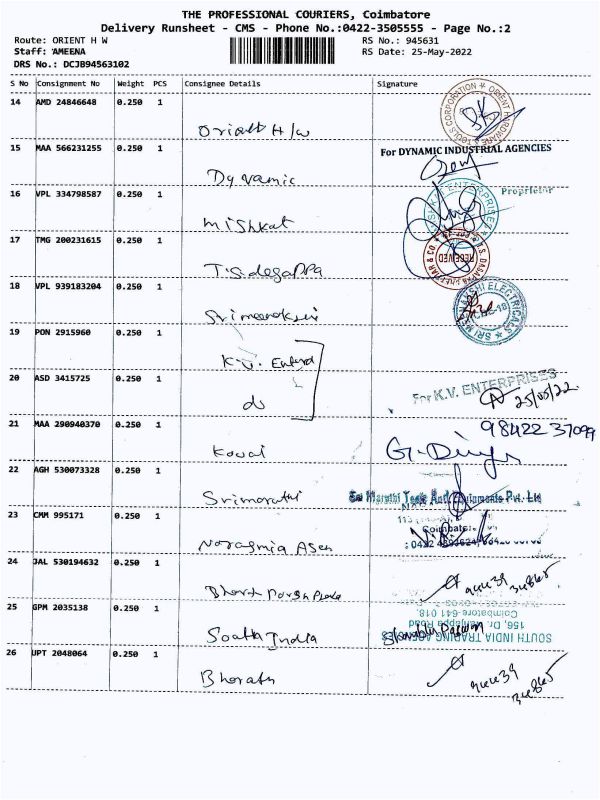 THE PROFESSIONAL COURIERS, Coimbatore
Delivery Runsheet - CMS - Phone No.:0422-3505555 - Page No.:2
Route: ORIENT H W
RS No.: 945631
Staff: AMEENA
RS Date: 25-May-2022
DRS No.: DCJB94563102
S No Consignment No Weight PCS Consignee Details Signature
14 AMD 24846648 0.250 1
Orientt H/W
ORIENT HARDWARE TOOLS CORPORATION
15 MAA 566231255 0.250 1
For DYNAMIC INDUSTRIAL AGENCIES
Dynamic
Proprietor
16 VPL 334798587 0.250 1
Mishkat
MISHKAT ENTERPRISES
17 TMG 200231615 0.250 1
RECEIVED
18 VPL 939183204 0.250 1
SRI MEENAKSHI ELECTRICALS
Srimeenakshi
19 PON 2915960 0.250 1
K.V. Enterd
20 ASD 3415725 0.250 1
For K.V. ENTERPRISES
25/05/22
do
21 MAA 290940370 0.250 1
98422 37099
Kovai
22 AGH 530073328 0.250 1
Srimaruthi
Sri Maruthi Tools And Equipments Pvt. Ltd
23 CMM 995171 0.250 1
Coimbatore
24 JAL 530194632 0.250 1
25 GPM 2035138 0.250 1
Coimbatore-641 018.
156, Dr. Nanjappa Road
South India
SOUTH INDIA TRADING AGENCIES
26 UPT 2048064 0.250 1
Bharath